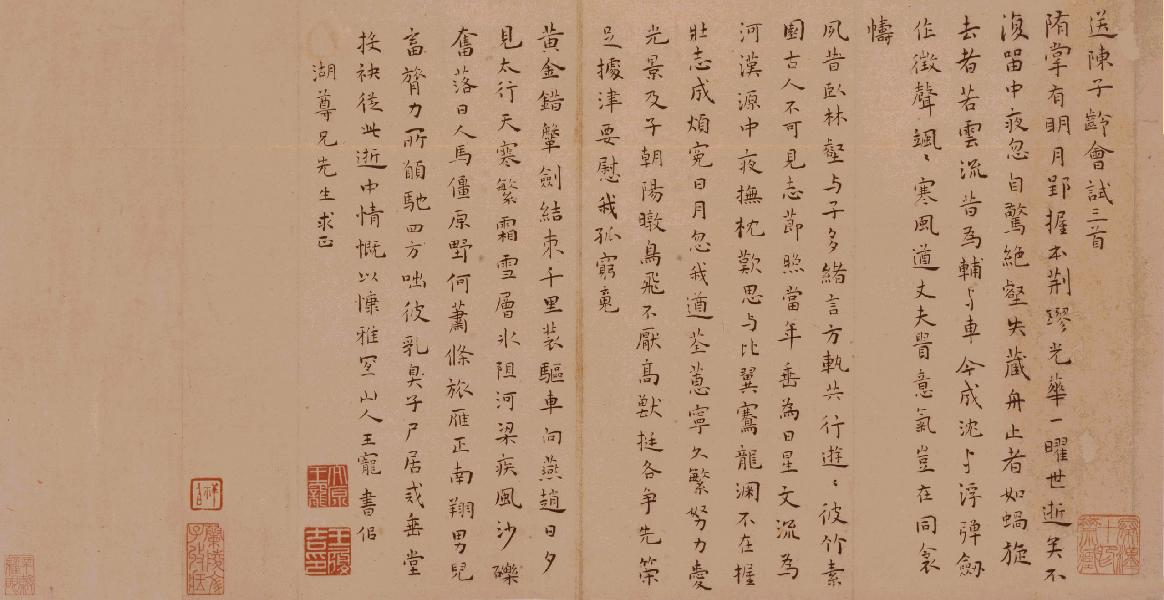 送陳子齡會試三首
隋掌有明月郢握本荆璆光華一曜世逝矣不
復留中夜忽自驚絕壑失藏舟止者如蝸旋
去者若雲流昔為輔与車今成沈与浮彈劒
作徵聲颯〻寒風遒丈夫貴意氣豈在同衾
幬
夙昔臥林壑与子多緒言方軌共行遊〻彼竹素
園古人不可見志節照當年垂為日星文流為
河漢源中夜撫枕歎思与比翼騫龍淵不在握
壯志成煩寃日月忽我遒荃蕙寧久繁努力愛
光景及子朝陽暾鳥飛不厭高獸挺各争先策
足據津要慰我孤窮䰟
黃金錯鞶劍結束千里裝驅車向燕趙日夕
見太行天寒繁霜雪層氷阻河梁疾風沙礫
奮落日人馬僵原野何蕭條旅雁正南翔男兒
富膂力所願馳四方咄彼乳臭子尸居戒垂堂
接袂從此逝中情慨以慷雅宜山人王寵書侣
湖尊兄先生求正
王寵